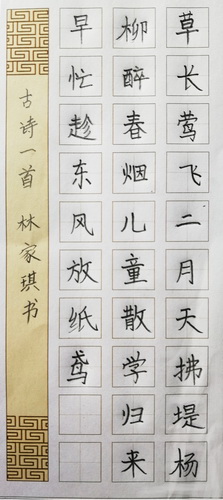 草长莺飞二月天拂堤杨
柳醉春烟儿童散学归来
早忙趁东风放纸鸢
古诗一首 林家琪书